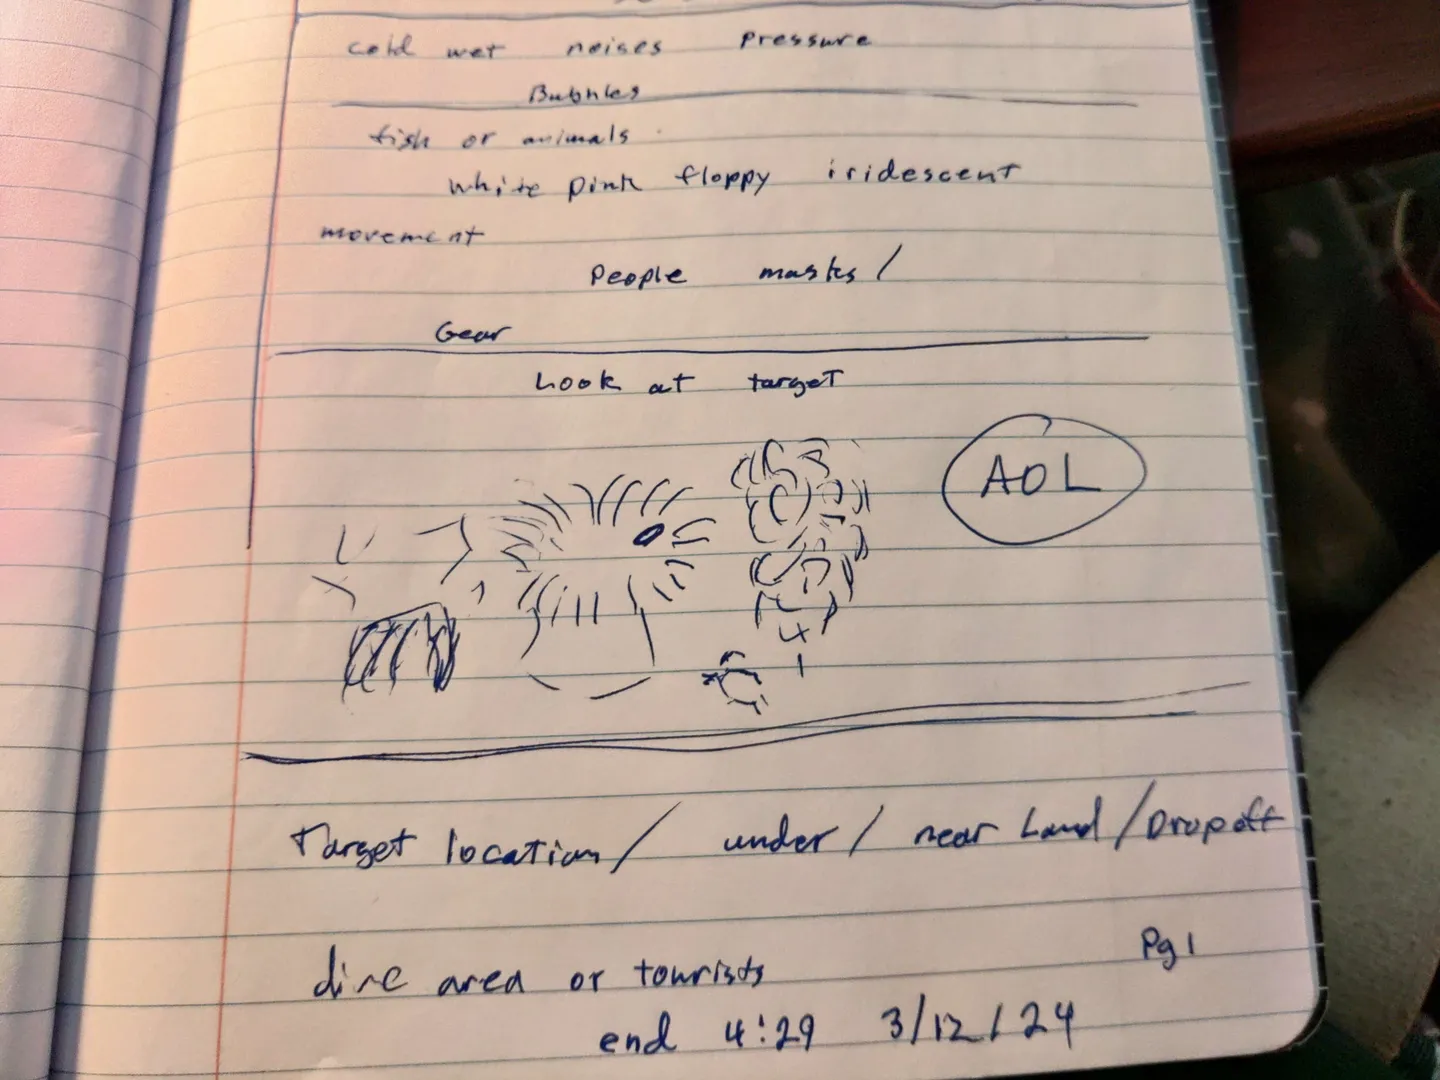 cold wet noises pressure
Bubbles
fish or animals
white pink floppy iridescent
movement
People masks /
Gear
Look at target
AOL
Target location / under / near Land / Dropoff
dive area or tourists
Pg 1
end 4:29 3/12/24